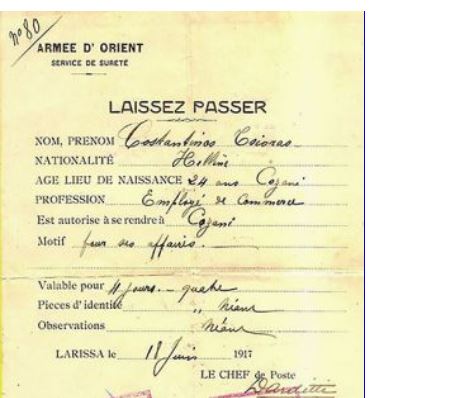 nº 80
ARMEE D' ORIENT
SERVICE DE SURETÉ
LAISSEZ PASSER
NOM, PRENOM Costantinos Tsioras
NATIONALITÉ Hellène
AGE LIEU DE NAISSANCE 24 ans Cozani
PROFESSION Employé de Commerce
Est autorise à se rendre à Cozani
Motif pour ses affaires.
Valable pour 4 jours. - quatre
Pieces d'identité " Néant
Observations Néant
LARISSA le 18 Juin 1917
LE CHEF de Poste